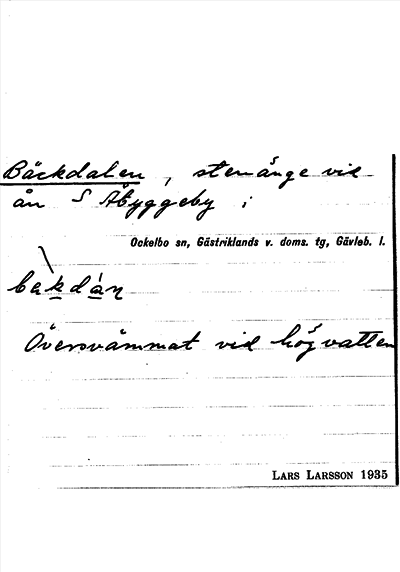 Bäckdalen, stenänge vid
ån S Åbyggeby i
Ockelbo sn, Gästriklands v. doms. tg, Gävleb. l.
bakdán
Översvämmat vid högvatten
LARS LARSSON 1935